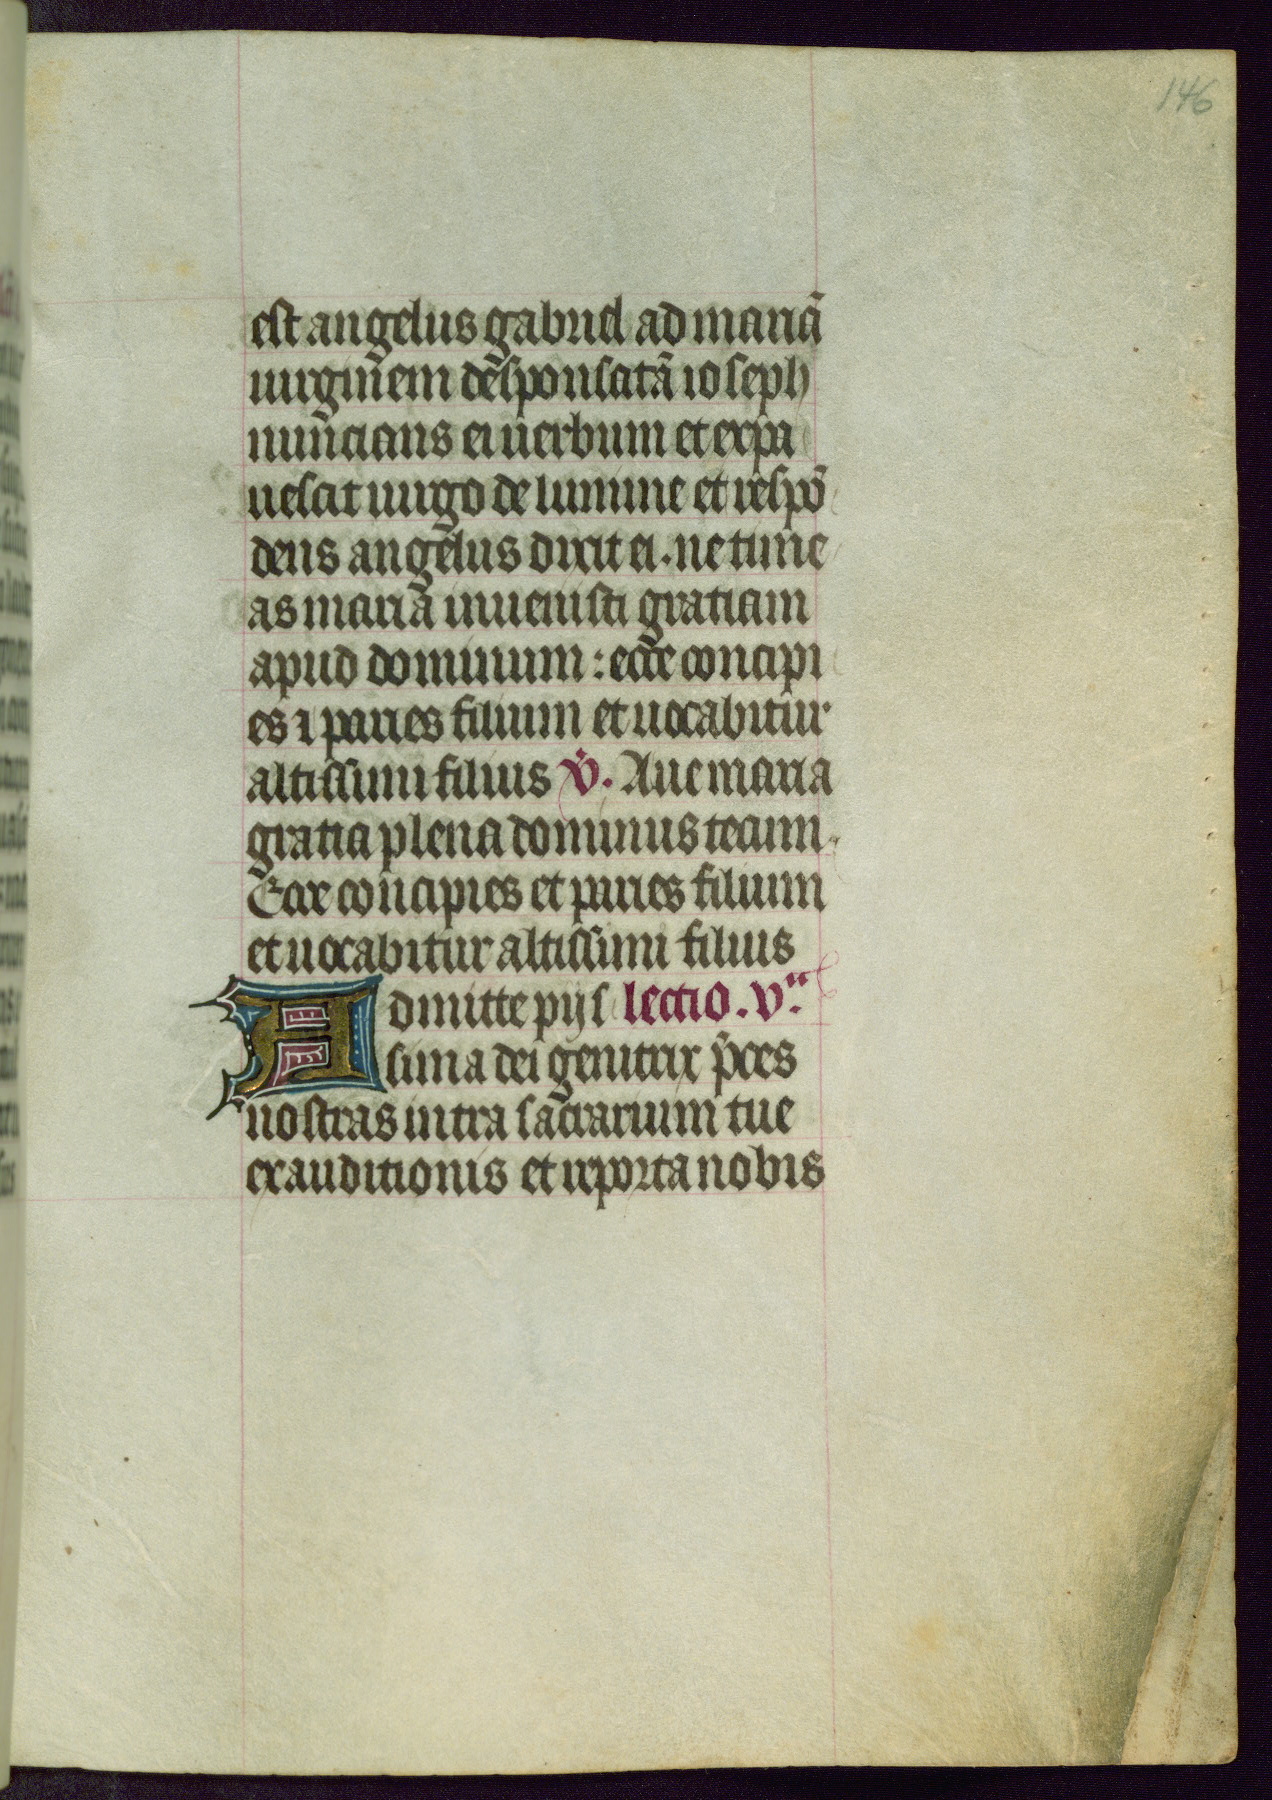 146
est angelus gabriel ad mariã
uirginem desponsatã ioseph
nuncians ei uerbum et expa
uescit uirgo de lumine et respõ
dens angelus dixit ei. ne time
as maria inuenisti gratiam
apud dominum : ecce concipi
es ⁊ paries filium et uocabitur
altissimi filius v̊. Aue maria
gratia plena dominus tecum.
Ecce concipies et paries filium
et uocabitur altissimi filius
Admitte pijs lectio. vᵃ.
sima dei genitrix p̄ces
nostras intra sacrarium tue
exauditionis et reporta nobis